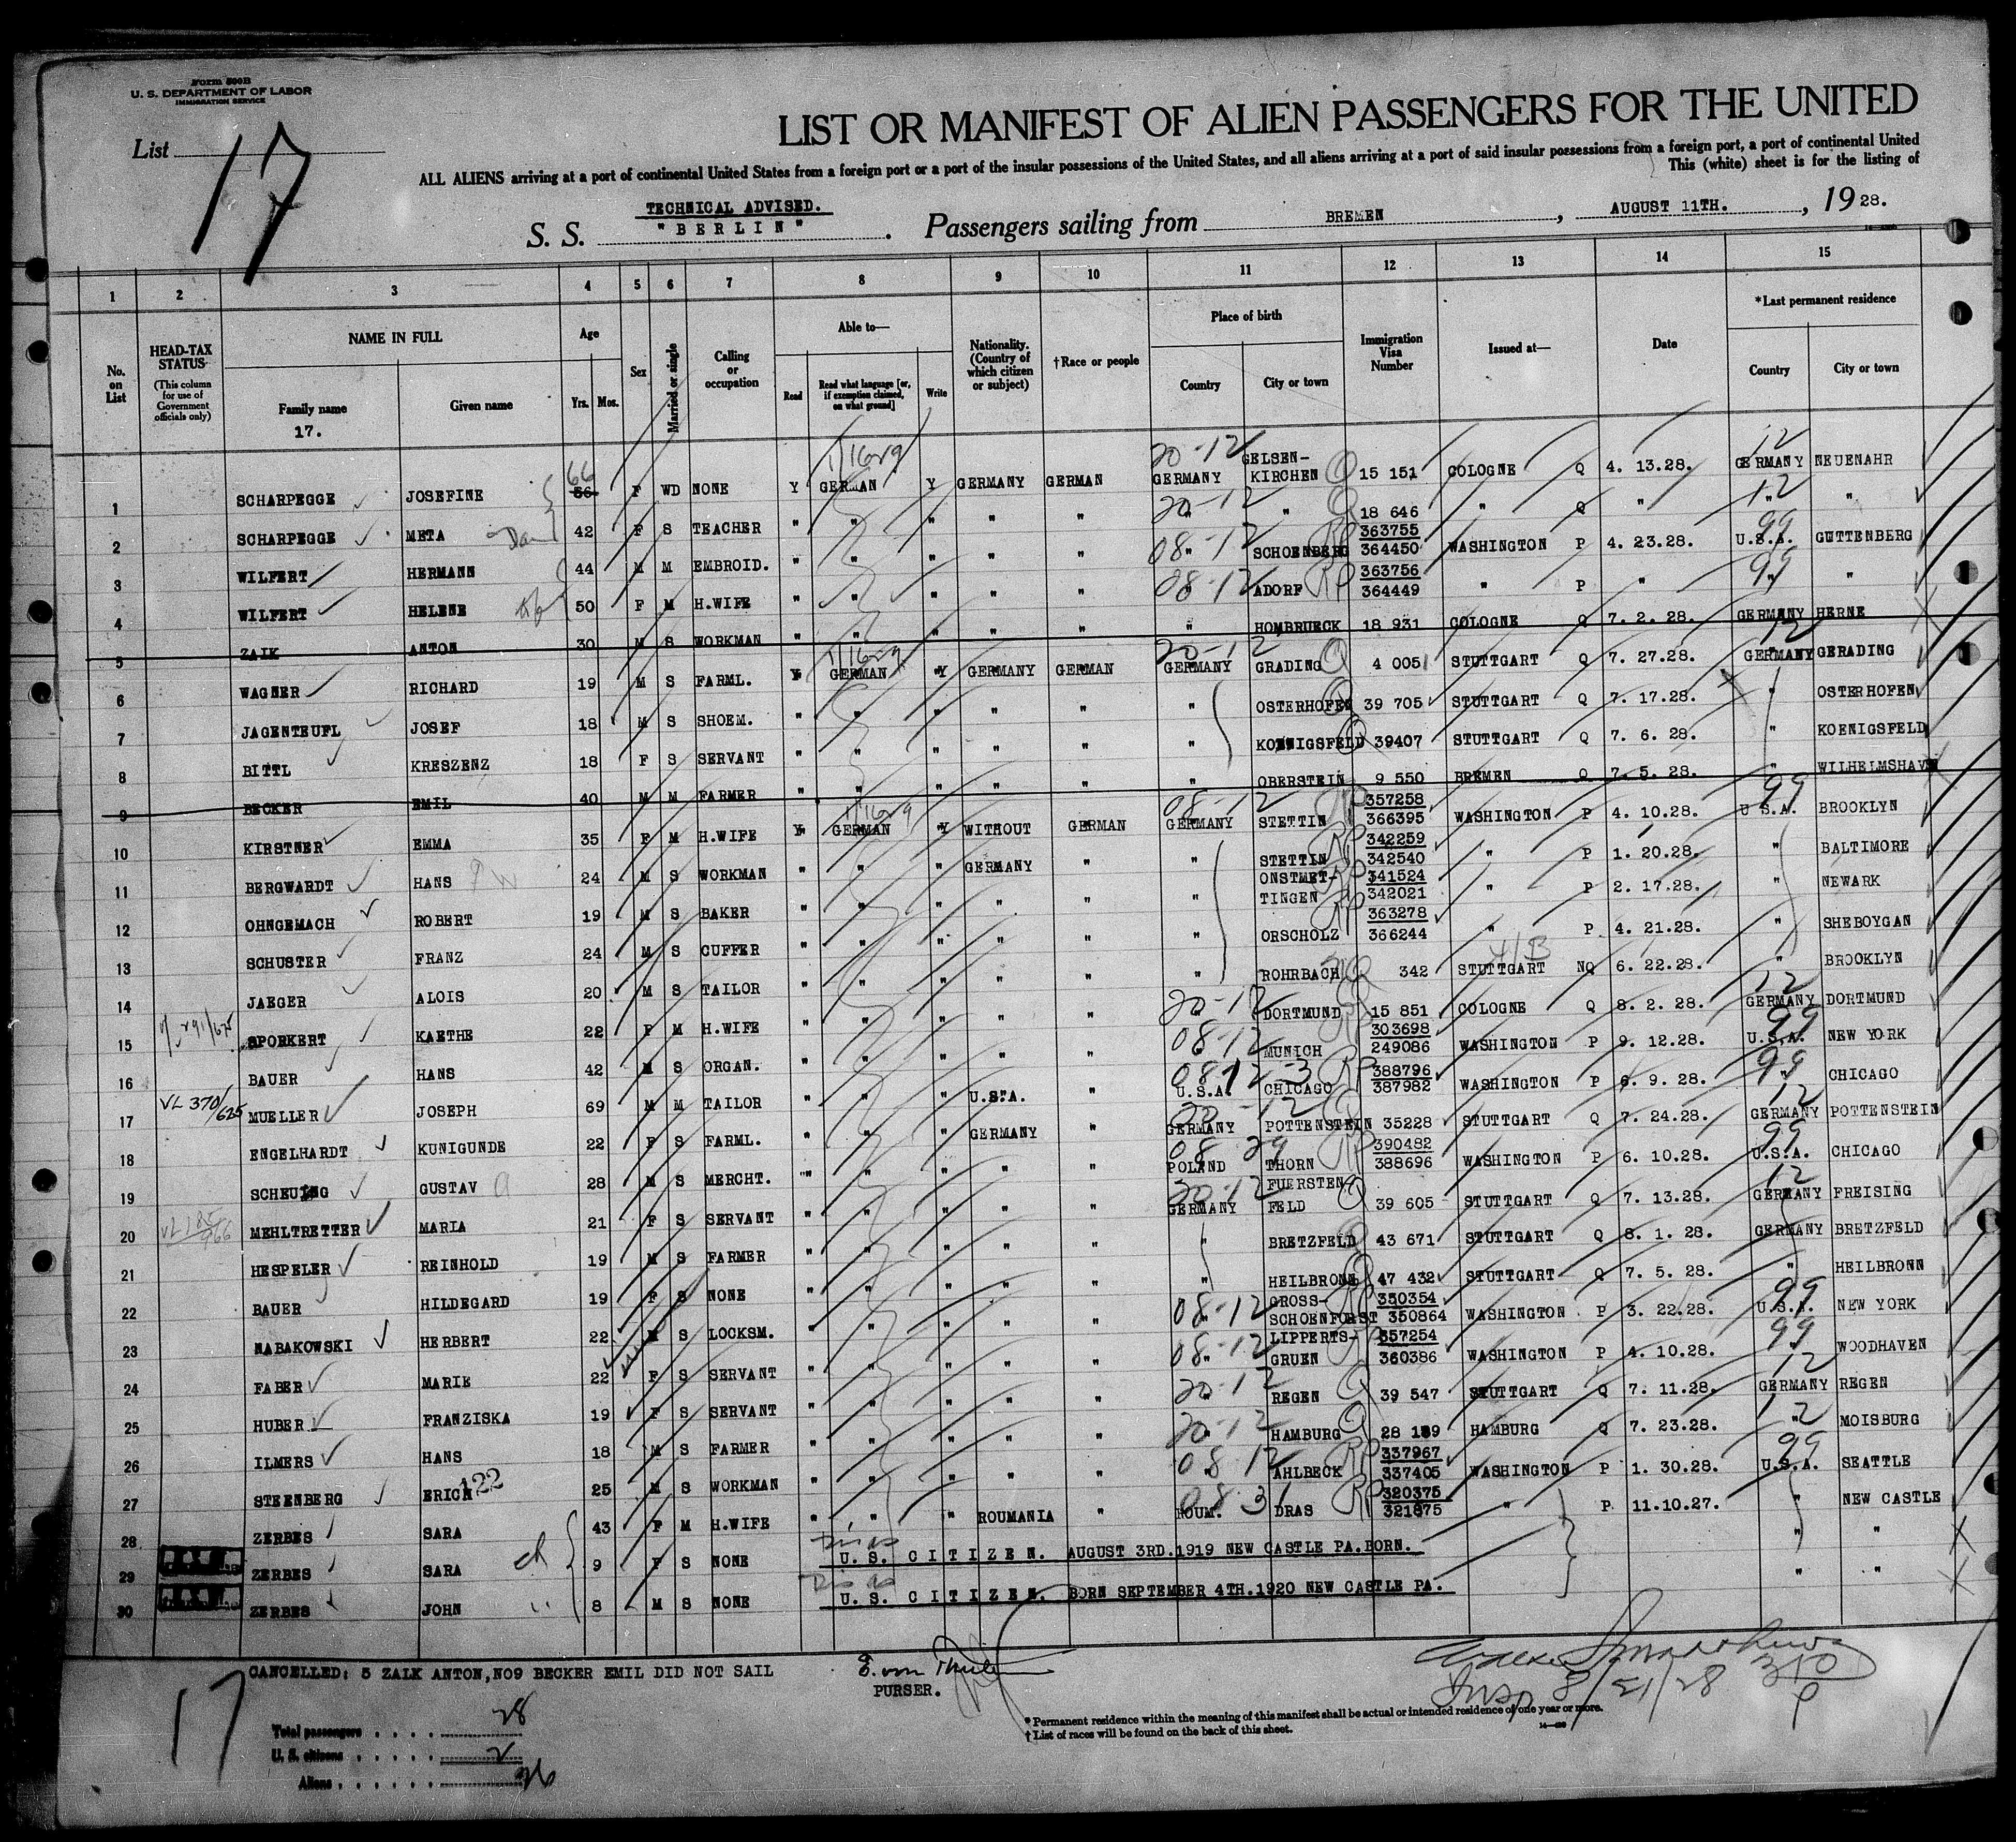 Form 500B
U. S. DEPARTMENT OF LABOR
IMMIGRATION SERVICE
List 17
LIST OR MANIFEST OF ALIEN PASSENGERS FOR THE UNITED
ALL ALIENS arriving at a port of continental United States from a foreign port or a port of the insular possessions of the United States, and all aliens arriving at a port of said insular possessions from a foreign port, a port of continental United
This (white) sheet is for the listing of
TECHNICAL ADVISED.
S. S. "BERLIN". Passengers sailing from BREMEN, AUGUST 11TH., 1928.
1 2 3 4 5 6 7 8 9 10 11 12 13 14 15
No. on List
HEAD-TAX STATUS
(This column for use of Government officials only)
NAME IN FULL
Family name
Given name
17.
Age
Yrs. Mos.
Sex
Married or single
Calling or occupation
Able to—
Read
Read what language [or, if exemption claimed, on what ground]
Write
Nationality. (Country of which citizen or subject)
†Race or people
Place of birth
Country
City or town
Immigration Visa Number
Issued at—
Date
*Last permanent residence
Country
City or town
1 SCHARPEGGE JOSEFINE 56 66 F WD NONE Y GERMAN Y GERMANY GERMAN 20-12 GERMANY GELSEN-KIRCHEN Q 15 151 COLOGNE Q 4. 13.28. 12 GERMANY NEUENAHR
2 SCHARPEGGE META 42 F S TEACHER " " " " " 20-12 " " Q 18 646 " Q " 12 " "
3 WILFERT HERMANN 44 M M EMBROID. " " " " " 08-12 " SCHOENBERG RP 363755 364450 WASHINGTON P 4. 23.28. 99 U.S.A. GUTTENBERG
4 WILFERT HELENE 50 F M H.WIFE " " " " " 08-12 " ADORF RP 363756 364449 " P " 99 " "
5 ZAIK ANTON 30 M S WORKMAN " " " " " " HOMBRUECK 18 931 COLOGNE Q 7. 2. 28. GERMANY HERNE
6 WAGNER RICHARD 19 M S FARML. Y GERMAN Y GERMANY GERMAN 20-12 GERMANY GRADING Q 4 005 STUTTGART Q 7. 27.28. 12 GERMANY GERADING
7 JAGENTEUFL JOSEF 18 M S SHOEM. " " " " " " OSTERHOFEN Q 39 705 STUTTGART Q 7. 17.28. " OSTERHOFEN
8 BITTL KRESZENZ 18 F S SERVANT " " " " " " KOENIGSFELD Q 39407 STUTTGART Q 7. 6. 28. " KOENIGSFELD
9 BECKER EMIL 40 M M FARMER " " " " " " OBERSTEIN 9 550 BREMEN Q 7. 5. 28. " WILHELMSHAVEN
10 KIRSTNER EMMA 35 F M H.WIFE Y GERMAN Y WITHOUT GERMAN 08-12 GERMANY STETTIN RP 357258 366395 WASHINGTON P 4. 10.28. 99 U.S.A. BROOKLYN
11 BERGWARDT HANS 24 M S WORKMAN " " " GERMANY " " STETTIN RP 342259 342540 " P 1. 20.28. " BALTIMORE
12 OHNGEMACH ROBERT 19 M S BAKER " " " " " " ONSTMET-TINGEN RP 341524 342021 " P 2. 17.28. " NEWARK
13 SCHUSTER FRANZ 24 M S CUFFER " " " " " " ORSCHOLZ RP 363278 366244 " P 4. 21.28. " SHEBOYGAN
14 JAEGER ALOIS 20 M S TAILOR " " " " " " ROHRBACH NQ 342 STUTTGART 4/B NQ 6. 22.28. " BROOKLYN
15 SPORKERT KAETHE 22 F M H.WIFE " " " " " 20-12 " DORTMUND Q 15 851 COLOGNE Q 8. 2. 28. 12 GERMANY DORTMUND
16 BAUER HANS 42 M S ORGAN. " " " " " 08-12 " MUNICH RP 303698 249086 WASHINGTON P 9. 12.28. 99 U.S.A. NEW YORK
17 VL 370/625 MUELLER JOSEPH 69 M M TAILOR " " " U.S.A. " 08-12-3 U.S.A. CHICAGO RP 388796 387982 WASHINGTON P 6. 9. 28. 99 " CHICAGO
18 ENGELHARDT KUNIGUNDE 22 F S FARML. " " " GERMANY " 20-12 GERMANY POTTENSTEIN Q 35228 STUTTGART Q 7. 24.28. 12 GERMANY POTTENSTEIN
19 SCHEUING GUSTAV 28 M S MERCHT. " " " " " 08-29 POLAND THORN RP 390482 388696 WASHINGTON P 6. 10.28. 99 U.S.A. CHICAGO
20 MEHLTRETTER MARIA 21 F S SERVANT " " " " " 20-12 GERMANY FUERSTEN-FELD Q 39 605 STUTTGART Q 7. 13.28. 12 GERMANY FREISING
21 HESPELER REINHOLD 19 M S FARMER " " " " " " BRETZFELD Q 43 671 STUTTGART Q 8. 1. 28. GERMANY BRETZFELD
22 BAUER HILDEGARD 19 F S NONE " " " " " " HEILBRONN Q 47 432 STUTTGART Q 7. 5. 28. " HEILBRONN
23 NABAKOWSKI HERBERT 22 M S LOCKSM. " " " " " 08-12 " GROSS-SCHOENFORST RP 350354 350864 WASHINGTON P 3. 22.28. 99 U.S.A. NEW YORK
24 FABER MARIE 22 F S SERVANT " " " " " 08-12 " LIPPERTS-GRUEN RP 357254 360386 WASHINGTON P 4. 10.28. 99 " WOODHAVEN
25 HUBER FRANZISKA 19 F S SERVANT " " " " " 20-12 " REGEN Q 39 547 STUTTGART Q 7. 11.28. 12 GERMANY REGEN
26 ILMERS HANS 18 M S FARMER " " " " " 20-12 " HAMBURG Q 28 189 HAMBURG Q 7. 23.28. 12 " MOISBURG
27 STEENBERG ERICH 122 25 M S WORKMAN " " " " " 08-12 " AHLBECK RP 337967 337405 WASHINGTON P 1. 30.28. 99 U.S.A. SEATTLE
28 ZERBES SARA 43 F M H.WIFE " " " ROUMANIA " 08-31 ROUM. DRAS RP 320375 321875 " P 11.10.27. " NEW CASTLE
29 ZERBES SARA ch 9 F S NONE U. S. CITIZEN. AUGUST 3RD.1919 NEW CASTLE PA.BORN. " "
30 ZERBES JOHN " 8 M S NONE U. S. CITIZEN. BORN SEPTEMBER 4TH.1920 NEW CASTLE PA. " "
CANCELLED: 5 ZALK ANTON, NO9 BECKER EMIL DID NOT SAIL
PURSER.
17
Insp 8/21/28 310
Total passengers . . . . 28
U. S. citizens . . . . . 2
Aliens . . . . . . 26
*Permanent residence within the meaning of this manifest shall be actual or intended residence of one year or more.
†List of races will be found on the back of this sheet.